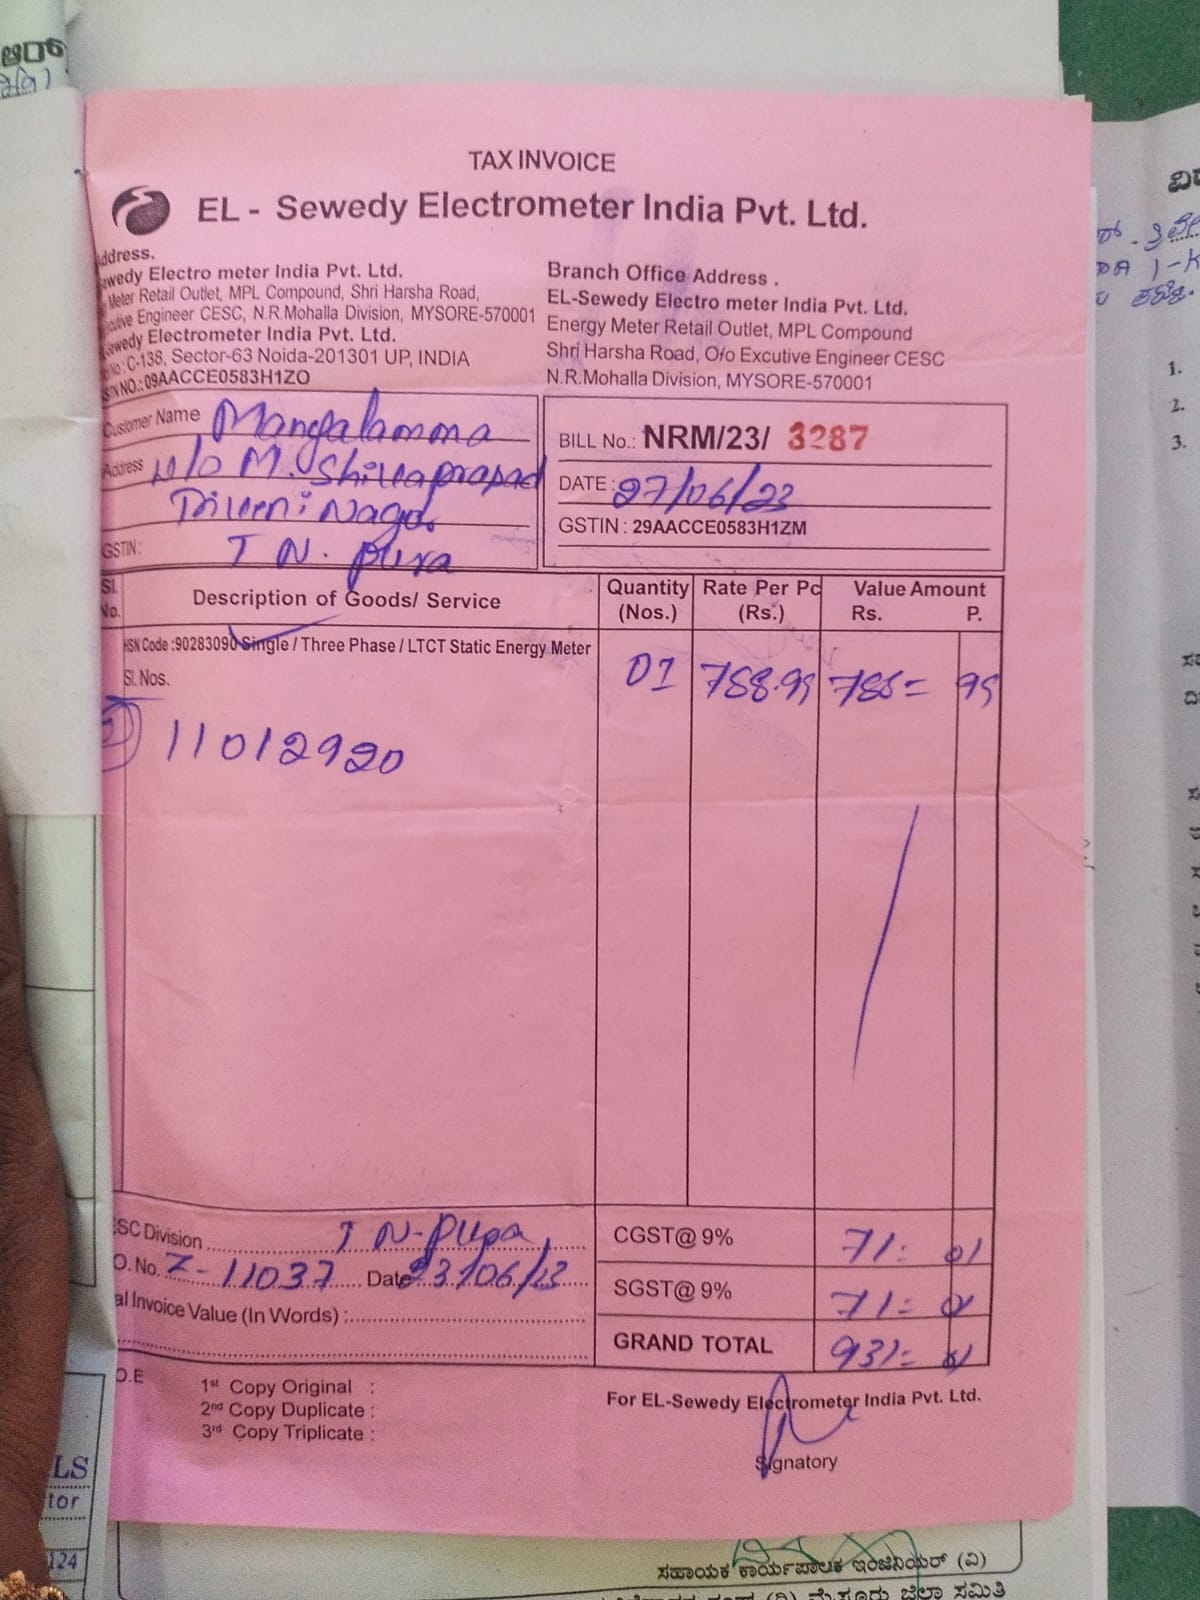 TAX INVOICE
EL - Sewedy Electrometer India Pvt. Ltd.
Address.
Sewedy Electro meter India Pvt. Ltd.
Meter Retail Outlet, MPL Compound, Shri Harsha Road,
Engineer CESC, N.R.Mohalla Division, MYSORE-570001
Sewedy Electrometer India Pvt. Ltd.
C-138, Sector-63 Noida-201301 UP, INDIA
NO.:09AACCE0583H1ZO
Branch Office Address .
EL-Sewedy Electro meter India Pvt. Ltd.
Energy Meter Retail Outlet, MPL Compound
Shri Harsha Road, O/o Excutive Engineer CESC
N.R.Mohalla Division, MYSORE-570001
Customer Name Mangalamma
Address W/O M. Shivaprasad
Nagar
GSTIN: T N. pura
BILL No.: NRM/23/ 3287
DATE : 27/06/23
GSTIN : 29AACCE0583H1ZM
Sl. No. Description of Goods/ Service Quantity (Nos.) Rate Per Pc (Rs.) Value Amount Rs. P.
HSN Code :90283090 Single / Three Phase / LTCT Static Energy Meter
Sl. Nos. 01 788.99 788= 99
11012920
SC Division T N-Pura
O. No. Z-11037 Date 23/06/23
al Invoice Value (In Words) :
CGST@ 9% 71= 01
SGST@ 9% 71= 01
GRAND TOTAL 931= 01
O.E
1st Copy Original :
2nd Copy Duplicate :
3rd Copy Triplicate :
For EL-Sewedy Electrometer India Pvt. Ltd.
Signatory
LS
tor
124
1.
2.
3.
ಸಹಾಯಕ ಕಾರ್ಯಪಾಲಕ ಇಂಜಿನಿಯರ್ (ವಿ)
ಮೈಸೂರು ಜಿಲ್ಲಾ ಸಮಿತಿ